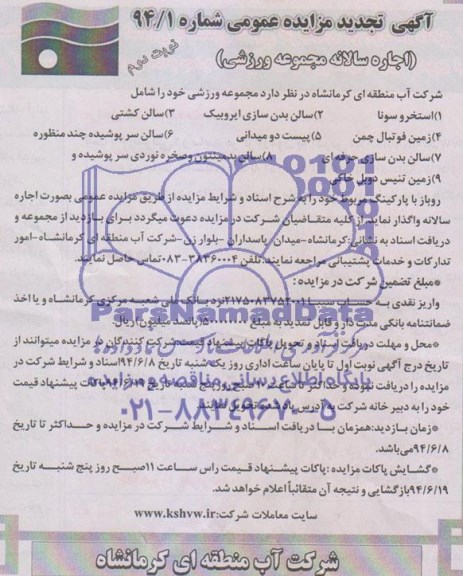 آگهی تجدید مزایده عمومی شماره ۹۴/۱
(اجاره سالانه مجموعه ورزشی)
نوبت دوم
شرکت آب منطقه ای کرمانشاه در نظر دارد مجموعه ورزشی خود را شامل
۱)استخرو سونا ۲)سالن بدن سازی ایروبیک ۳)سالن کشتی
۴)زمین فوتبال چمن ۵)پیست دو میدانی ۶)سالن سر پوشیده چند منظوره
۷)سالن بدن سازی حرفه ای ۸)سالن بدمینتون وصخره نوردی سر پوشیده و
۹)زمین تنیس دوبل خاکی
روباز با پارکینگ مربوط خود را به شرح اسناد و شرایط مزایده از طریق مزایده عمومی بصورت اجاره
سالانه واگذار نماید.از کلیه متقاضیان شرکت در مزایده دعوت میگردد برای بازدید از مجموعه و
دریافت اسناد به نشانی:کرمانشاه-میدان پاسداران -بلوار زن-شرکت آب منطقه ای کرمانشاه-امور
تدارکات و خدمات پشتیبانی مراجعه نمایند.تلفن ۳۸۳۶۰۰۰۴-۰۸۳تماس حاصل نمایند.
*مبلغ تضمین شرکت در مزایده :
واریز نقدی به حساب سیبا نزد بانک ملی شعبه مرکزی کرمانشاه و یا اخذ
ضمانتنامه بانکی مدت دار و قابل تمدید به مبلغ پانصد میلیون)ریال.
*محل و مهلت دریافت اسناد و تحویل پاکات پیشنهاد قیمت:شرکت کنندگان در مزایده میتوانند از
تاریخ درج آگهی نوبت اول تا پایان ساعت اداری روز یکشنبه تاریخ ۹۴/۶/۸اسناد و شرایط شرکت در
مزایده را دریافت نموده و حداکثر تا پاکات پیشنهاد قیمت
خود را به دبیر خانه شرکت به آدرس یاد شده تحویل نمایند.
*زمان بازدید:همزمان با دریافت اسناد و شرایط شرکت در مزایده و حداکثر تا تاریخ
۹۴/۶/۸می‌باشد.
*گشایش پاکات مزایده :پاکات پیشنهاد قیمت راس ساعت ۱۱صبح روز پنج شنبه به تاریخ
۹۴/۶/۱۹بازگشایی و نتیجه آن متقائباً اعلام خواهد شد.
سایت معاملات شرکت:www.kshvw.ir
شرکت آب منطقه ای کرمانشاه
ParsNamadData
پایگاه اطلاع رسانی مناقصه و مزایده
۰۲۱-۸۸۳۴۹۶۷۰-۵